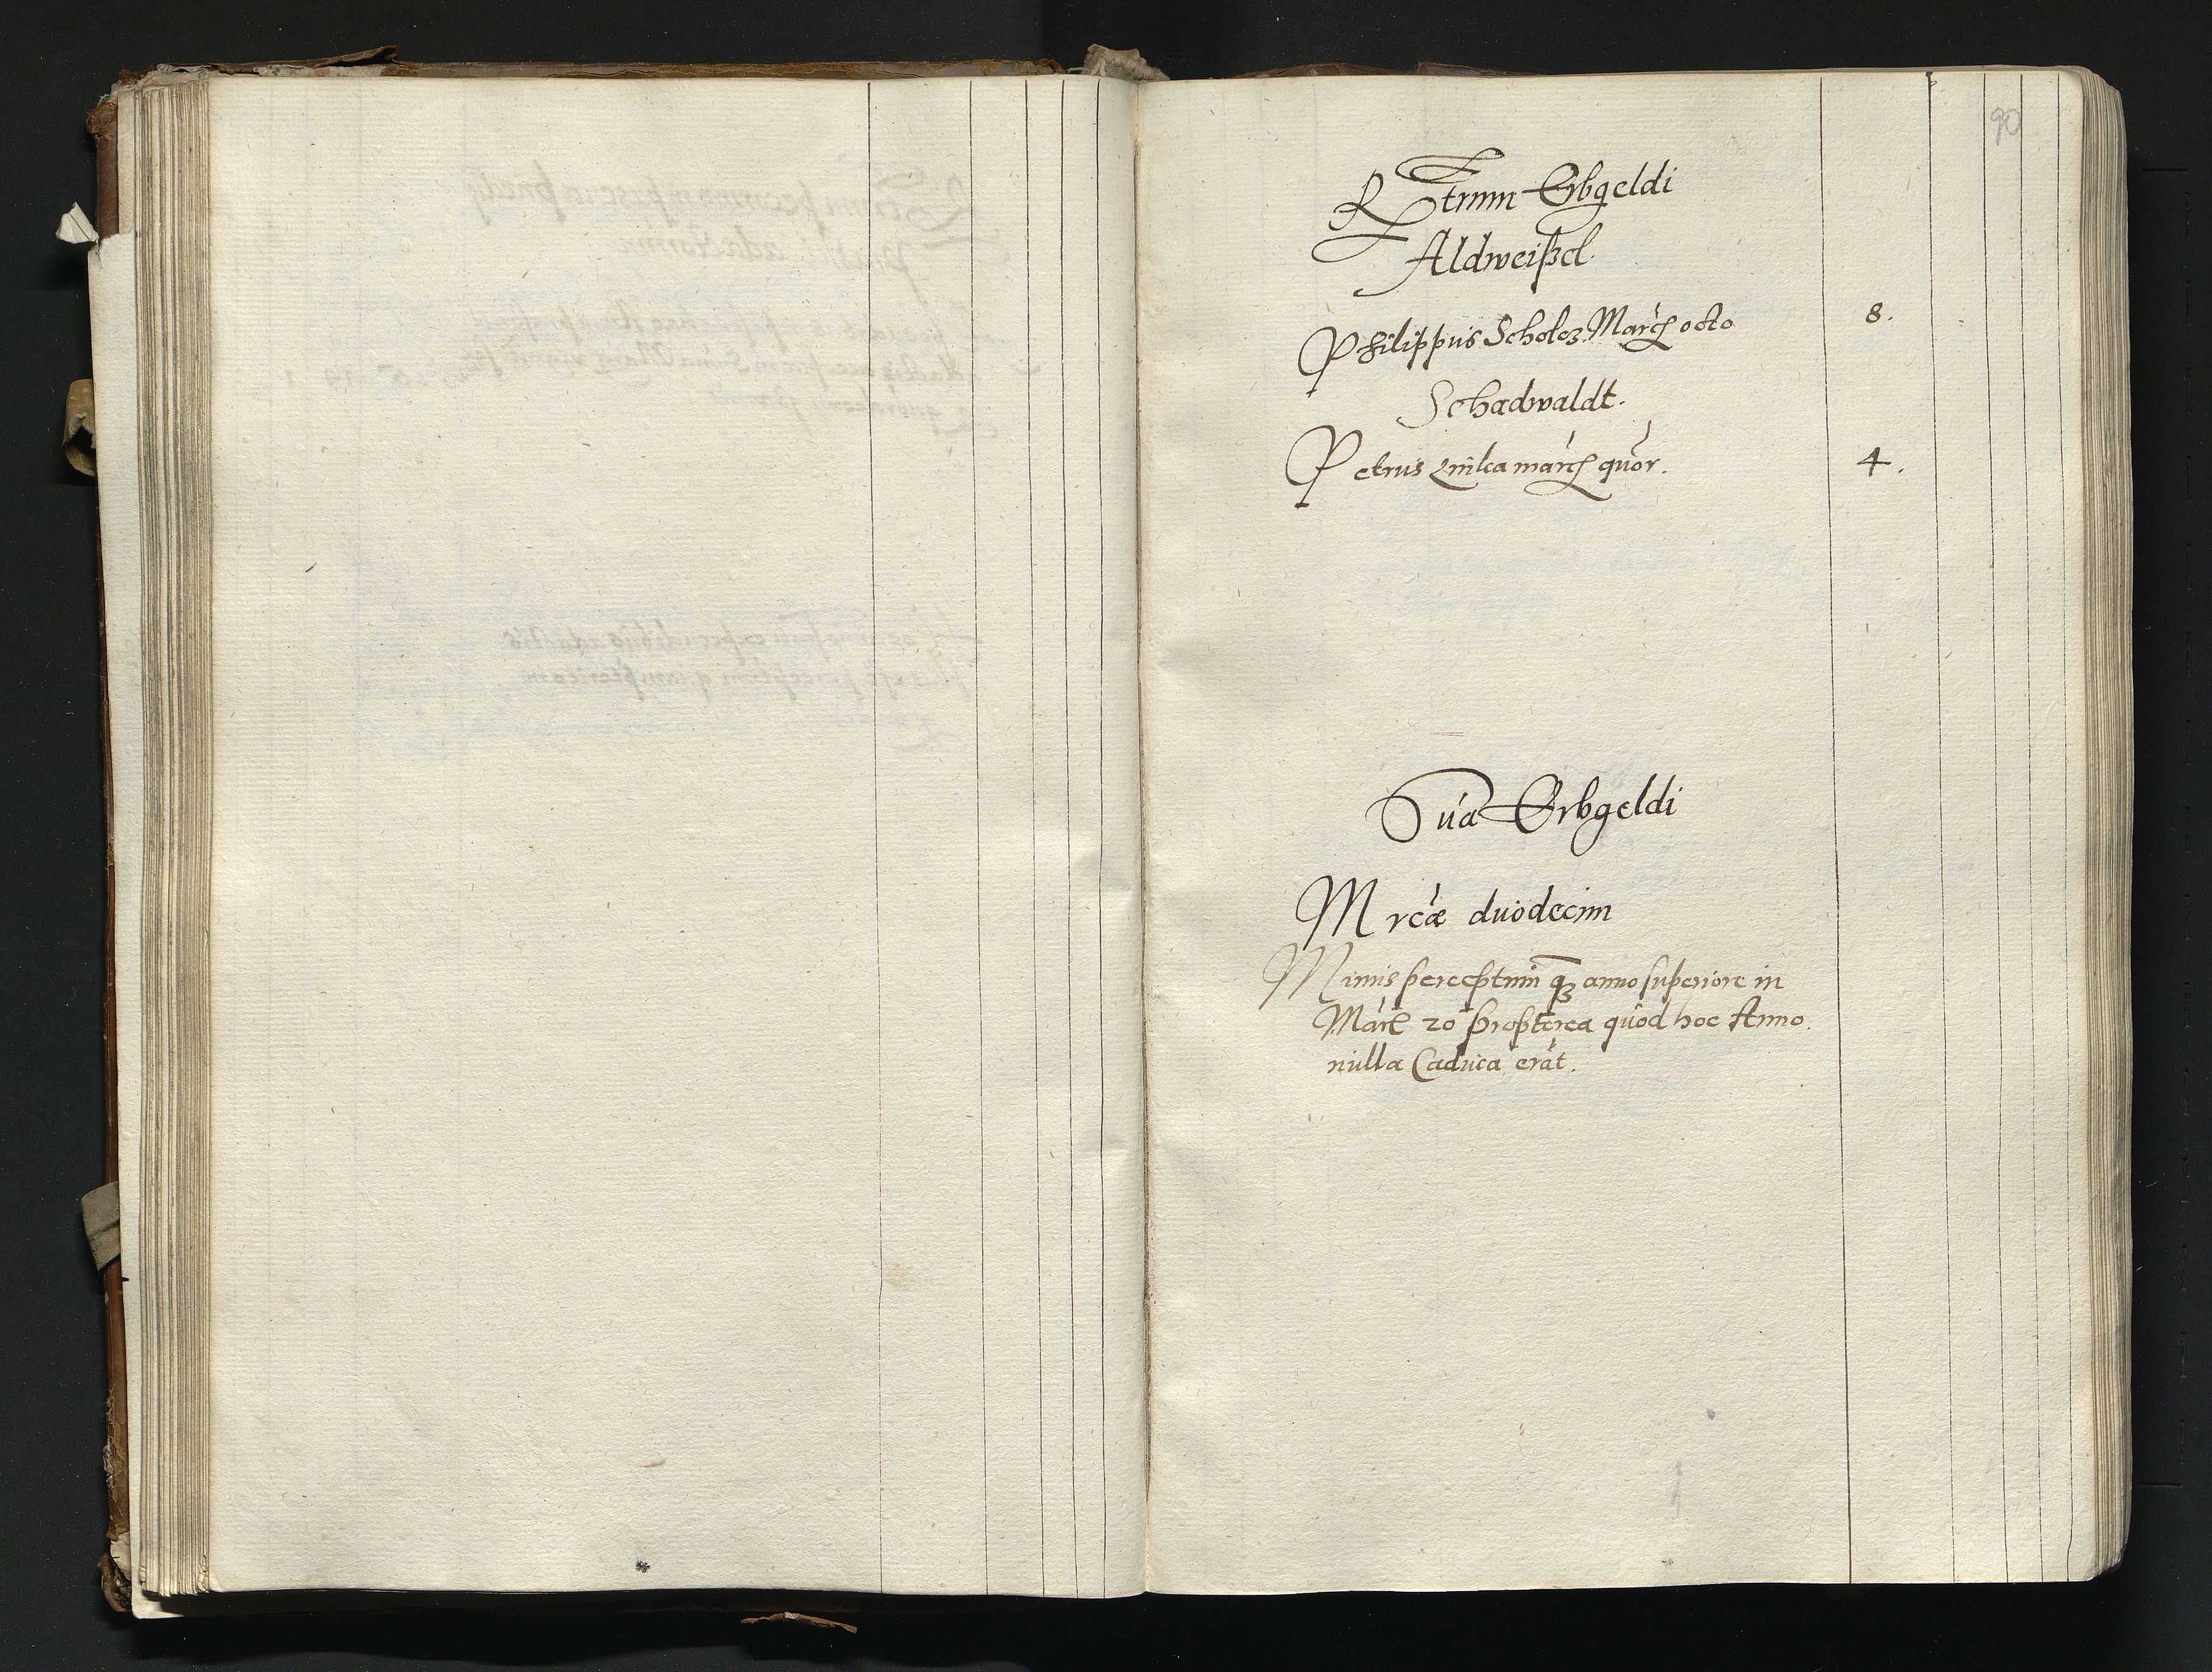 90
Rtrum Erbgeldi
Aldweißel.
Philippus Scholcz Marcs octo 8.
Schadwaldt.
Petrus marcs quor. 4.
Sua Erbgeldi
Mrcæ duodecim
Minus perceptum qz anno superiore in
Marc 20 propterea quod hoc Anno.
nulla Caduca erat.